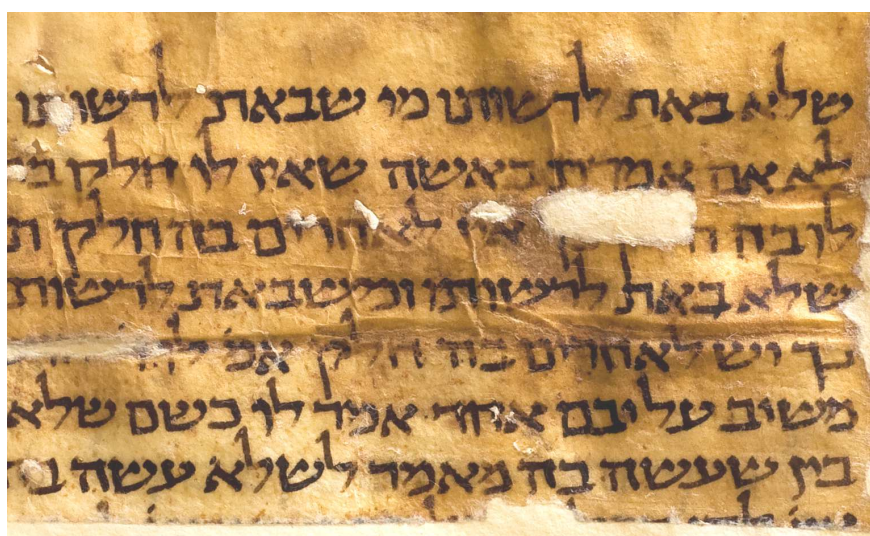 שלא באת לרשותו מי שבאת לרשותו
לא אם אמרת באשה שאין לו חלק
לו בה אין לאחרים בה חלק
שלא באת לרשותו ומשבאת לרשות
כך יש לאחרים בה חלק אמ'
משיב על יבם אחד אמר לו כשם שלא
בין שעשה בה מאמר לשלא עשה